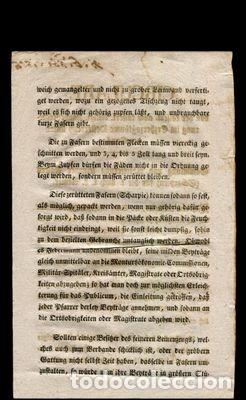 weich gemangelter und nicht zu grober Leinwand verferti-
get werden, wozu ein gezogenes Tischzeug nicht taugt,
weil es sich nicht gehörig zupfen läßt, und unbrauchbare
kurze Fasern gibt.
Die zu Fasern bestimmten Flecken müssen viereckig ge-
schnitten werden, und 3, 4, bis 5 Zoll lang und breit seyn.
Beym Zupfen dürfen die Fäden nicht in die Ordnung ge-
legt werden, sondern müssen zerüttet bleiben.
Diese zerütteten Fasern (Scharpie) können sodann so fest,
als möglich, gepackt werden, wenn nur gehörig dafür ge-
sorgt wird, daß sodann in die Päcke oder Küsten die Feuch-
tigkeit nicht eindringt, weil sie sonst leicht dumpfig, sohin
zu dem bezielten Gebrauche untauglich werden. Obwohl
es Jedermann unbenommen bleibt, seine milden Beyträge
gleich unmittelbar an die Monturökonomie-Commissionen,
Militär-Spitäler, Kreisämter, Magistrate oder Ortsobrig-
keiten abzugeben; so hat man doch zur möglichsten Erleich-
terung für das Publicum, die Einleitung getroffen, daß
jeder Pfarrer derley Beyträge annehmen, und sodann an
die Ortsobrigkeiten oder Magistrate abgeben wird.
Sollten einige Besitzer des feineren Leinenzeugs, wel-
ches auch zum Verbande schicklich ist, oder der gröbern
Gattung nicht selbst Zeit haben, dasselbe in Fasern umzu-
stalten, so würde in ihr Beytrag in größern Stü-
todocoleccion.net